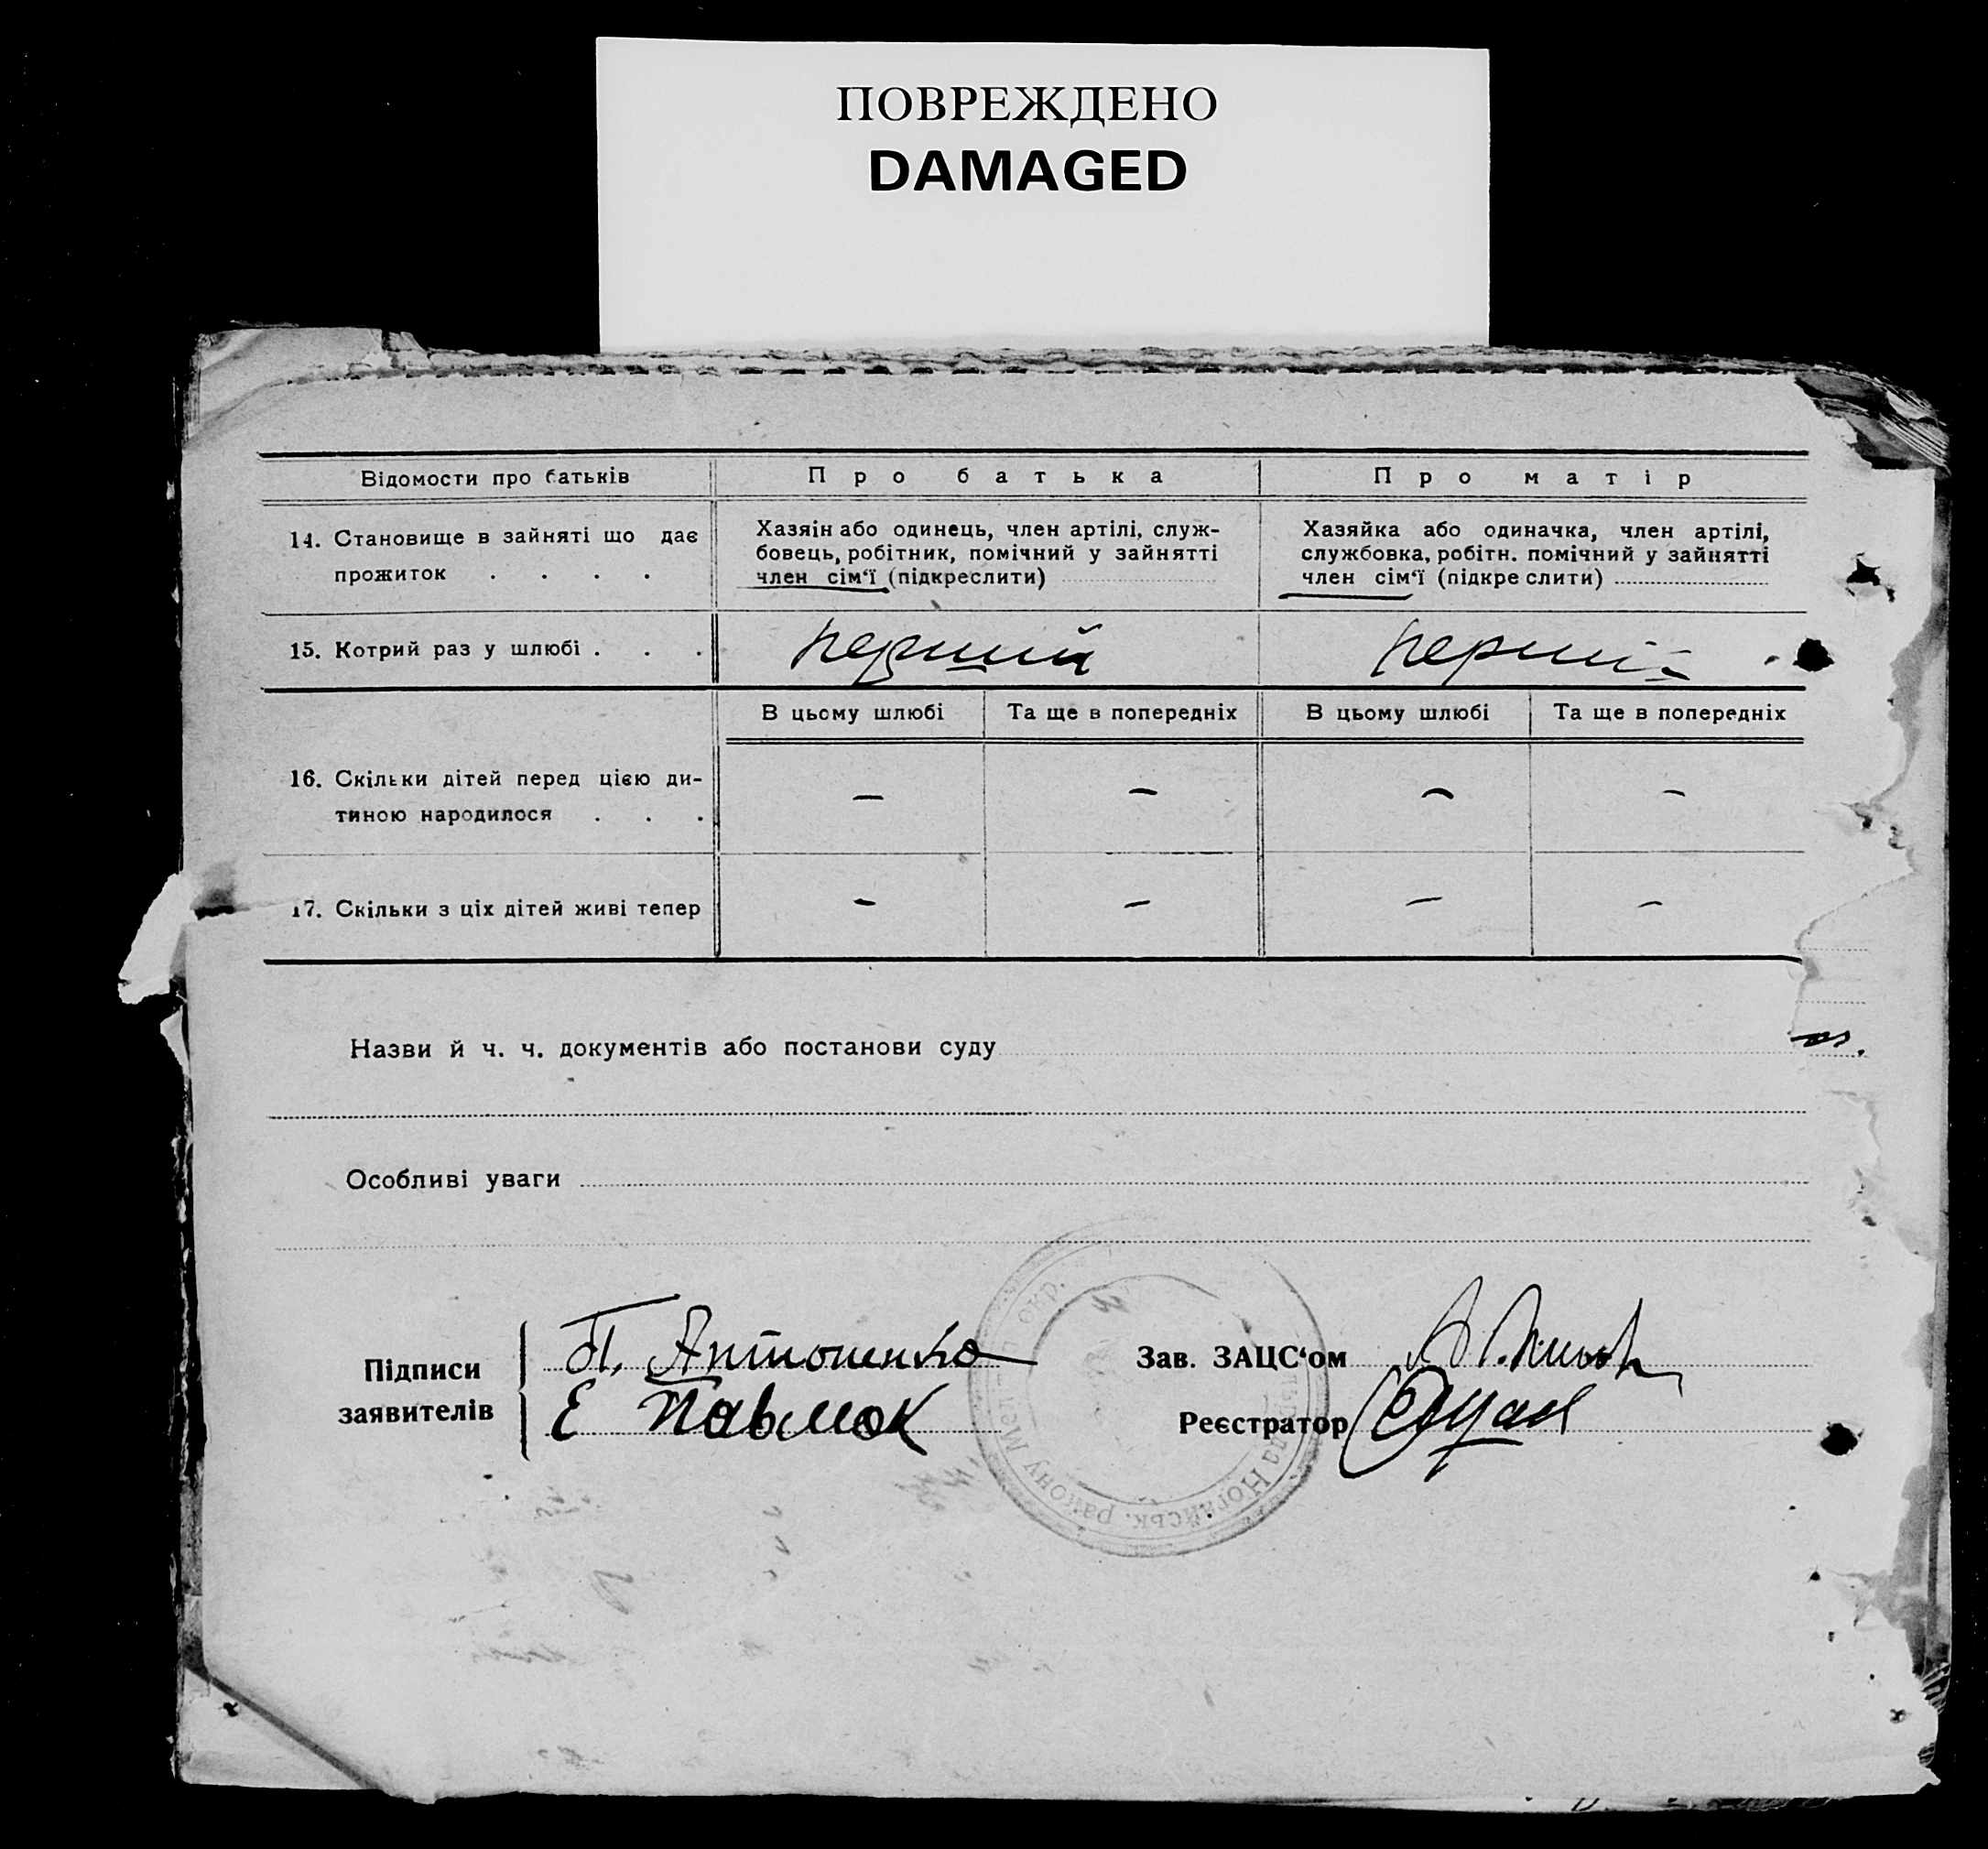 ПОВРЕЖДЕНО
DAMAGED
Відомости про батьків
Про батька
Про матір
14. Становище в зайняті що дає
прожиток . . . .
Хазяін або одинець, член артілі, служ-
бовець, робітник, помічний у зайнятті
член сім‘ї (підкреслити)
Хазяйка або одиначка, член артілі,
службовка, робітн. помічний у зайнятті
член сім‘ї (підкреслити)
15. Котрий раз у шлюбі . . .
перший
перший
В цьому шлюбі
Та ще в попередніх
В цьому шлюбі
Та ще в попередніх
16. Скільки дітей перед цією ди-
тиною народилося . . .
— — — —
17. Скільки з ціх дітей живі тепер
— — — —
Назви й ч. ч. документів або постанови суду
Особливі уваги
Підписи
заявителів
П. Антошенко
Е Павлюк
Зав. ЗАЦС‘ом
Реєстратор
Ногайськ. району Меліт. окр.